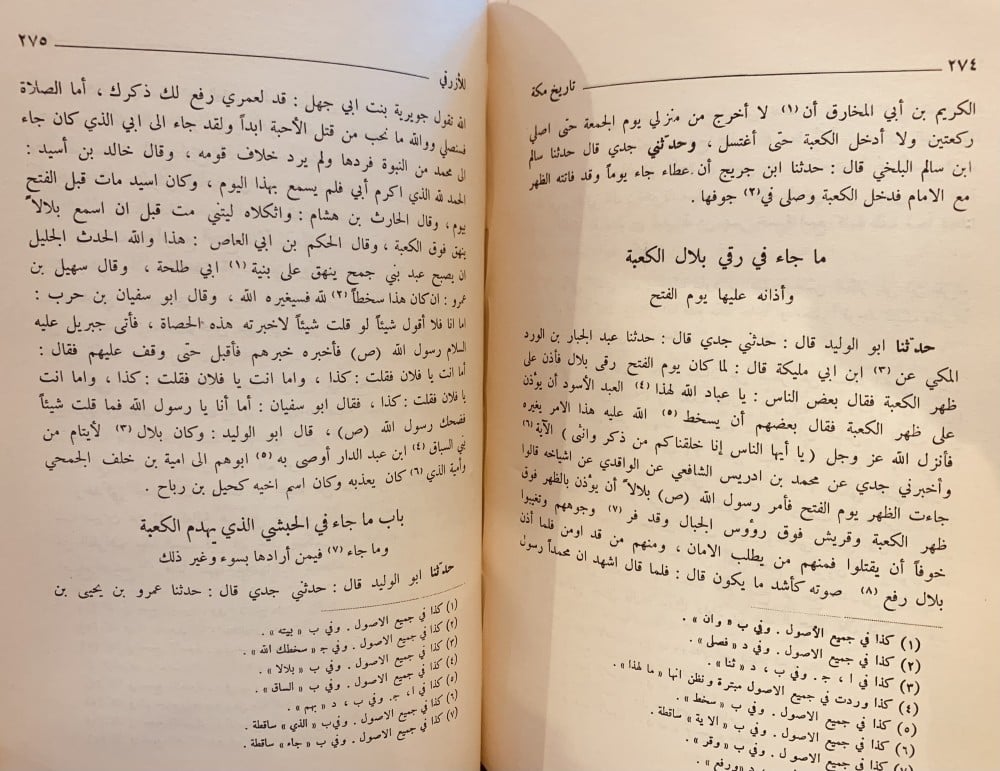 ٢٧٤
تاريخ مكة
الكريم بن أبي المخارق أن (١) لا أخرج من منزلي يوم الجمعة حتى اصلي
ركعتين ولا أدخل الكعبة حتى أغتسل ، وحدثني جدي قال حدثنا سالم
ابن سالم البلخي قال : حدثنا ابن جريج أن عطاء جاء يوماً وقد فاتته الظهر
مع الامام فدخل الكعبة وصلى في (٢) جوفها .
ما جاء في رقي بلال الكعبة
وأذانه عليها يوم الفتح
حدثنا ابو الوليد قال : حدثني جدي قال : حدثنا عبد الجبار بن الورد
المكي عن (٣) ابن ابي مليكة قال : لما كان يوم الفتح رقى بلال فأذن على
ظهر الكعبة فقال بعض الناس : يا عباد الله لهذا (٤) العبد الأسود أن يؤذن
على ظهر الكعبة فقال بعضهم أن يسخط (٥) الله عليه هذا الامر يغيره
فأنزل الله عز وجل ( يا أيها الناس إنا خلقناكم من ذكر وانثى ) الآية (٦)
وأخبرني جدي عن محمد بن ادريس الشافعي عن الواقدي عن اشياخه قالوا
جاءت الظهر يوم الفتح فأمر رسول الله (ص) بلالاً أن يؤذن بالظهر فوق
ظهر الكعبة وقريش فوق رؤوس الجبال وقد فر (٧) وجوههم وتغيبوا
خوفاً أن يقتلوا فمنهم من يطلب الامان ، ومنهم من قد اومن فلما أذن
بلال رفع (٨) صوته كأشد ما يكون قال : فلما قال اشهد ان محمداً رسول
(١) كذا في جميع الأصول . وفي ب « وان » .
(٢) كذا في جميع الاصول . وفي د « فصلى » .
(٣) كذا في ا ، ج . وفي ب ، د « ثنا » .
(٤) كذا وردت في جميع الاصول مبترة ونظن انها « ما لهذا » .
(٥) كذا في جميع الاصول . وفي ب « سخط » .
(٦) كذا في جميع الاصول . وفي ب « الاية » ساقطة .
كذا في جميع الاصول . وفي ب « وقر » .
د «ورفع» .
للأزرقي
٢٧٥
الله تقول جويرية بنت ابي جهل : قد لعمري رفع لك ذكرك ، أما الصلاة
فسنصلي ووالله ما نحب من قتل الأحبة ابداً ولقد جاء الى ابي الذي كان جاء
الى محمد من النبوة فردها ولم يرد خلاف قومه ، وقال خالد بن أسيد :
الحمد لله الذي اكرم أبي فلم يسمع بهذا اليوم ، وكان اسيد مات قبل الفتح
بيوم ، وقال الحارث بن هشام : واثكلاه ليتني مت قبل ان اسمع بلالاً
ينهق فوق الكعبة ، وقال الحكم بن ابي العاص : هذا والله الحدث الجليل
ان يصبح عبد بني جمح ينهق على بنية (١) ابي طلحة ، وقال سهيل بن
عمرو : ان كان هذا سخطاً (٢) لله فسيغيره الله ، وقال ابو سفيان بن حرب :
اما انا فلا أقول شيئاً لو قلت شيئاً لاخبرته هذه الحصاة ، فأتى جبريل عليه
السلام رسول الله (ص) فأخبره خبرهم فأقبل حتى وقف عليهم فقال :
أما انت يا فلان فقلت : كذا ، واما انت يا فلان فقلت : كذا ، واما انت
يا فلان فقلت : كذا ، فقال ابو سفيان : أما أنا يا رسول الله فما قلت شيئاً
فضحك رسول الله (ص) ، قال ابو الوليد : وكان بلال (٣) لأيتام من
بني السباق (٤) ابن عبد الدار أوصى به (٥) ابوهم الى امية بن خلف الجمحي
وأمية الذي (٦) كان يعذبه وكان اسم اخيه كحيل بن رباح .
باب ما جاء في الحبشي الذي يهدم الكعبة
وما جاء (٧) فيمن أرادها بسوء وغير ذلك
حدثنا ابو الوليد قال : حدثني جدي قال : حدثنا عمرو بن يحيى بن
(١) كذا في جميع الاصول . وفي ب « بيته » .
(٢) كذا في جميع الاصول . وفي ج « سخطك الله » .
(٣) كذا في جميع الاصول . وفي ب « بلالا » .
(٤) كذا في جميع الاصول . وفي ب « الساق » .
(٥) كذا في ا ، ج . وفي ب ، د « بهم » .
(٦) كذا في جميع الاصول . وفي ب « الذي » ساقطة .
(٧) كذا في جميع الاصول . وفي ب « جاء » ساقطة .